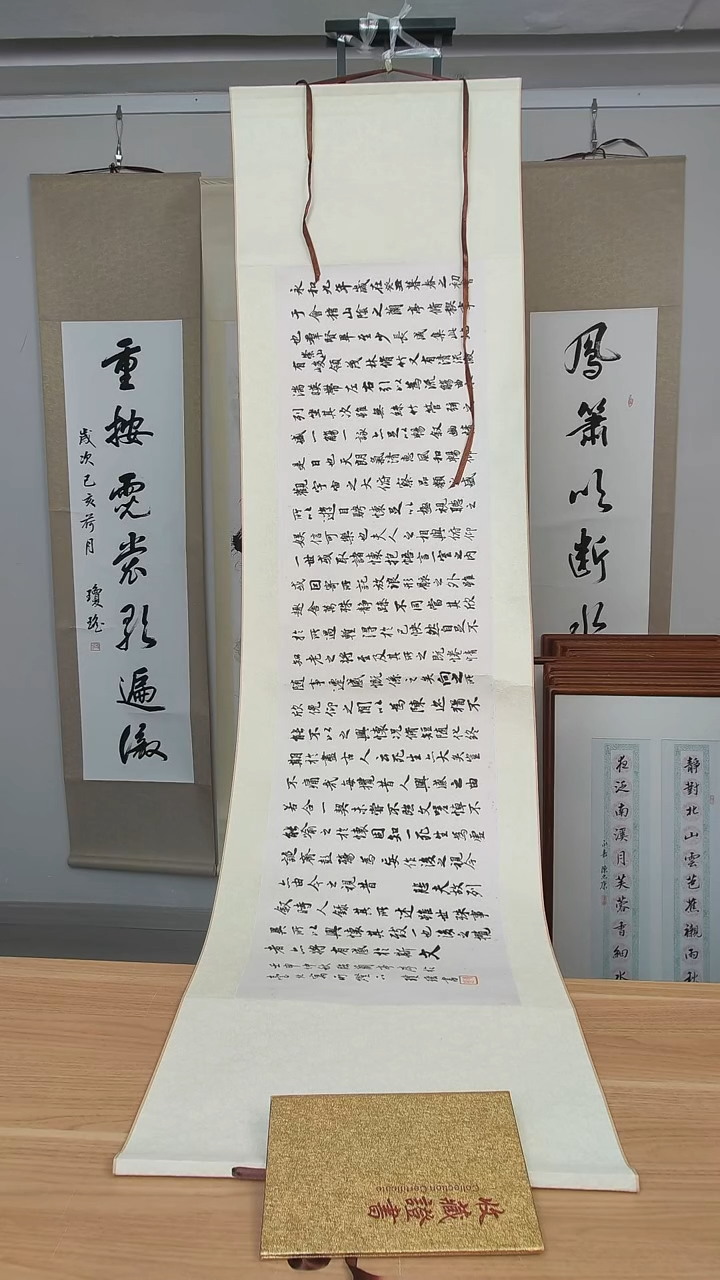 永和九年歲在癸丑暮春之初
于會稽山陰之蘭亭脩稧事
也羣賢畢至少長咸集此地
有崇山峻領茂林脩竹又有清流激
湍暎帶左右引以為流觴曲
列坐其次雖無絲竹管弦之
盛一觴一詠亦足以暢敘幽情
是日也天朗氣清惠風和暢仰
觀宇宙之大俯察品類之盛
所以遊目騁懷足以極視聽之
娛信可樂也夫人之相與俯仰
一世或取諸懷抱悟言室之內
或因寄所託放浪形骸之外雖
趣舍萬殊靜躁不同當其欣
於所遇暫得於己怏然自足不
知老之將至及其所之既惓情
隨事遷感慨係之矣向之所
欣俛仰之間以為陳迹猶不
能不以之興懷況脩短隨化終
期於盡古人云死生亦大矣豈
不痛哉每攬昔人興感之由
若合一契未嘗不臨文嗟悼不
能喻之於懷固知一死生為虛
誕齊彭殤為妄作後之視今
亦由今之視昔 悲夫故列
敘時人錄其所述雖世殊事
異所以興懷其致一也後之攬
者亦將有感於斯文
鳳簫吹斷水
重按霓裳歌遍徹
歲次己亥荷月
瓊瑤
靜對北山雲芭蕉襯雨秋
夜泛南溪月芙蓉香細水
收藏證書
Collection Certificate